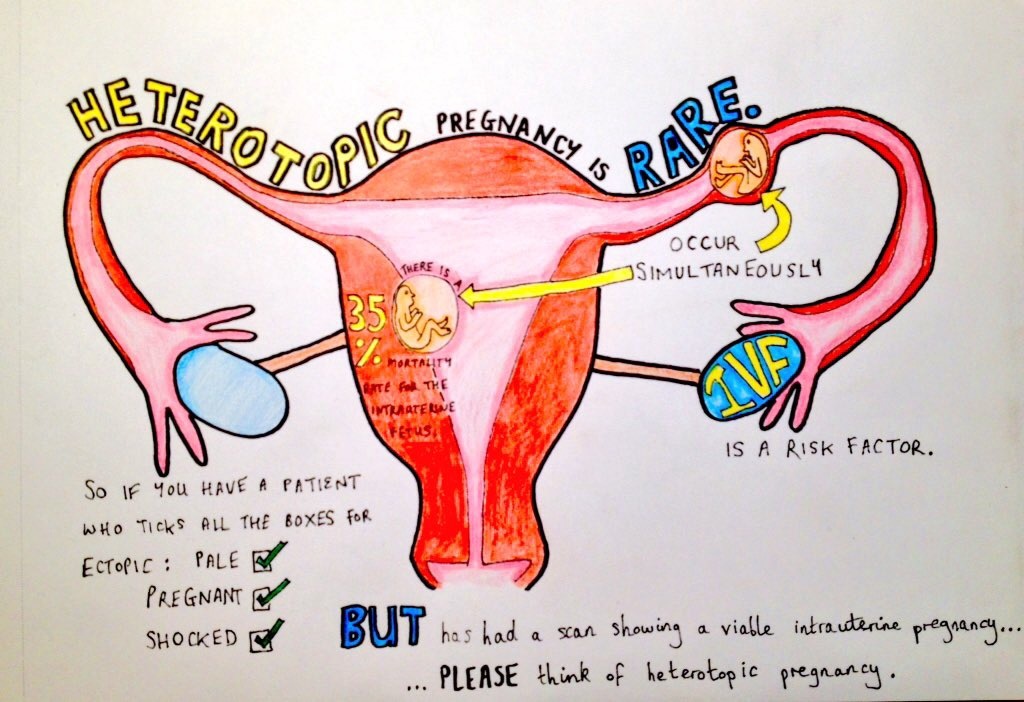 HETEROTOPIC PREGNANCY IS RARE.
OCCUR
SIMULTANEOUSLY
THERE IS A
35
%
MORTALITY
RATE FOR THE
INTRAUTERINE
FETUS.
IVF
IS A RISK FACTOR.
SO IF YOU HAVE A PATIENT
WHO TICKS ALL THE BOXES FOR
ECTOPIC: PALE
PREGNANT
SHOCKED
BUT has had a scan showing a viable intrauterine pregnancy...
... PLEASE think of heterotopic pregnancy.